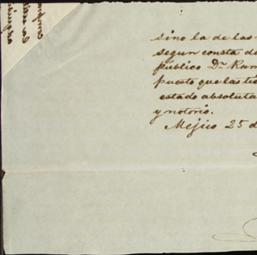 sino la de las
segun consta d
público Dn. Ram
puesto que las ti
estado absoluta
y notorio.
Mejico 25 d